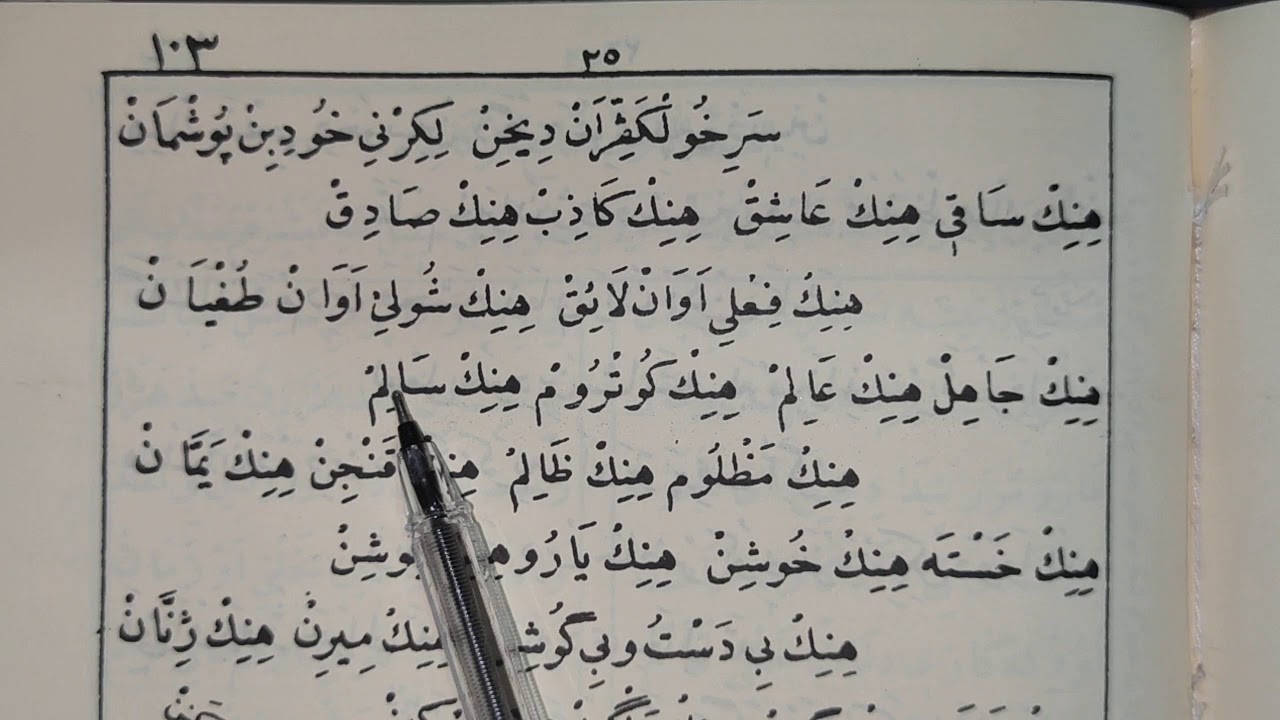 ١٠٣
٢٥
سَرِخُو لْكَڤِرَانْ دِيخِنْ لِكِرْنِي خُودِبِنْ پُوشْمَانْ
هِنِكْ سَاقِي هِنِكْ عَاشِقْ هِنِكْ كَاذِبْ هِنِكْ صَادِقْ
هِنِكْ فِعْلِي اَوَانْ لَايِقْ هِنِكْ شُولِي اَوَانْ طُغْيَانْ
هِنِكْ جَاهِلْ هِنِكْ عَالِمْ هِنِكْ كُوتْرُومْ هِنِكْ سَالِمْ
هِنِكْ مَظْلُوم هِنِكْ ظَالِمْ قَنْجِنْ هِنِكْ يَمَّانْ
هِنِكْ خَسْتَه هِنِكْ خُوشِنْ هِنِكْ يَارُو
هِنِكْ بِي دَسْتُ وبِي هِنِكْ مِيرِنْ هِنِكْ ژِنَّانْ